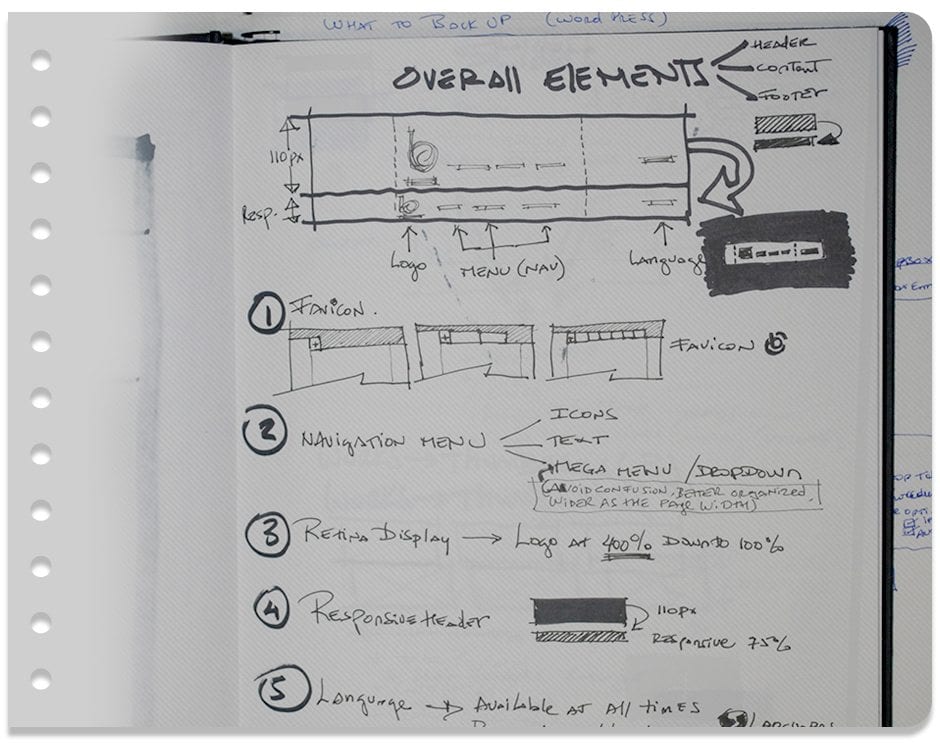 WHAT TO BACK UP (WORDPRESS)
OVERALL ELEMENTS
HEADER
CONTENT
FOOTER
110px
Resp.
Logo
MENU (NAV)
Language
1 FAVICON.
FAVICON
2 NAVIGATION MENU
ICONS
TEXT
MEGA MENU / DROPDOWN
(AVOID CONFUSION, BETTER ORGANIZED,
WIDER AS THE PAGE WIDTH)
3 RETINA DISPLAY → LOGO AT 400% DOWN TO 100%
4 RESPONSIVE HEADER
110px
RESPONSIVE 75%
5 LANGUAGE → AVAILABLE AT ALL TIMES